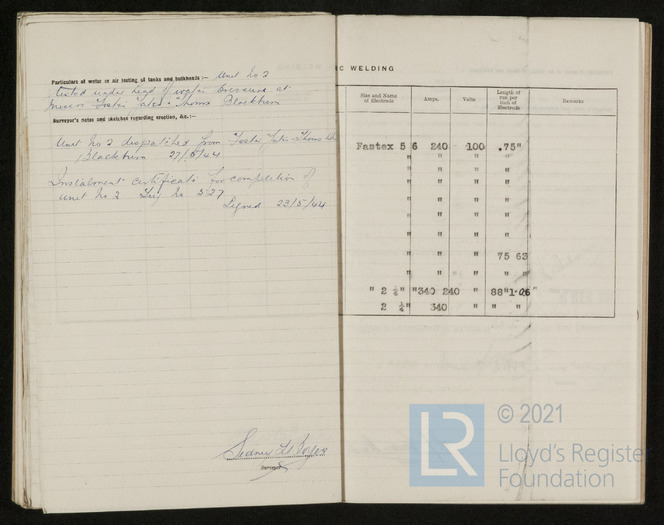 Particulars of water or air testing of tanks and bulkheads :— Unit No 2
tested under head of water pressure at
Messrs Foster Yates & Thoms Blackburn
Surveyor's notes and sketches regarding erection, &c. :—
Unit No 2 despatched from Foster Yates & Thoms
Blackburn 27/5/44
Instalment Certificate for completion of
unit No 2 Tug No 527
Signed 23/5/44
Surveyor
IC WELDING
Size and Name of Electrode Amps. Volts Length of run per inch of Electrode Remarks
Fastex 5 6 240 100 .75"
" " " "
" " " "
" " " "
" " " "
" " " "
" " " 75 63
" " " "
" 2 ¼" "340 240 " 88"1.06"
2 ¼" 340 " " "
LR © 2021
Lloyd's Register
Foundation